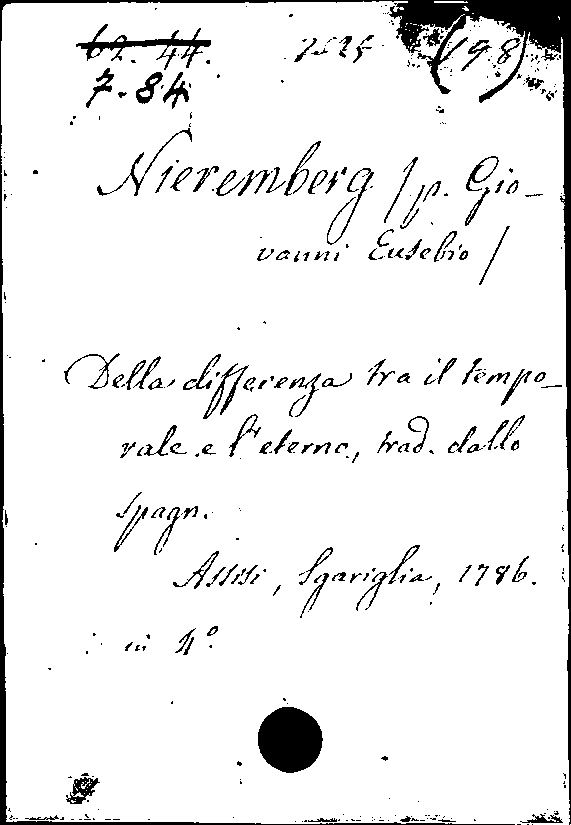 62. 44. 7625 (198)
7. 84
Nieremberg /p. Gio-
vanni Eusebio/
Della differenza tra il tempo-
rale e l'eterno, trad. dallo
spagn.
Assisi, Sgariglia, 1786.
in 4º